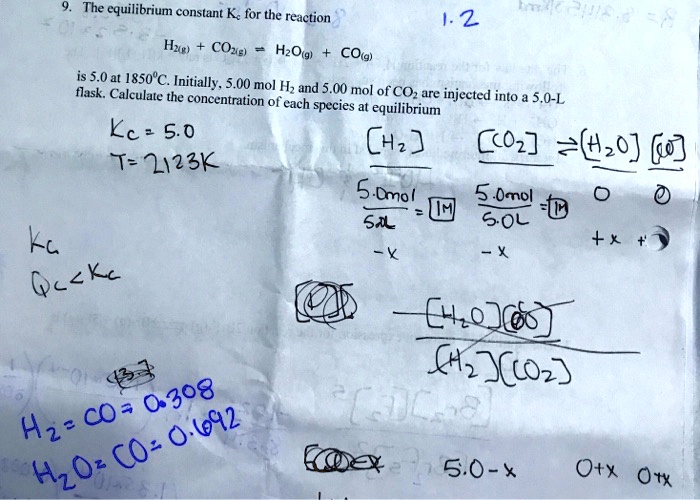 9. The equilibrium constant Kc for the reaction
1.2
H2(g) + CO2(g) = H2O(g) + CO(g)
is 5.0 at 1850°C. Initially, 5.00 mol H2 and 5.00 mol of CO2 are injected into a 5.0-L
flask. Calculate the concentration of each species at equilibrium
Kc = 5.0
T= 2123K
[H2] [CO2] ⇌ [H2O] [CO]
5.0mol/5.0L = 1M 5.0mol/5.0L = 1M 0 0
-x -x +x +
Kc
Qc<Kc
[H2O][CO]
[H2][CO2]
H2= CO= 0.308
H2O= CO= 0.692
5.0-x 0+x 0+x